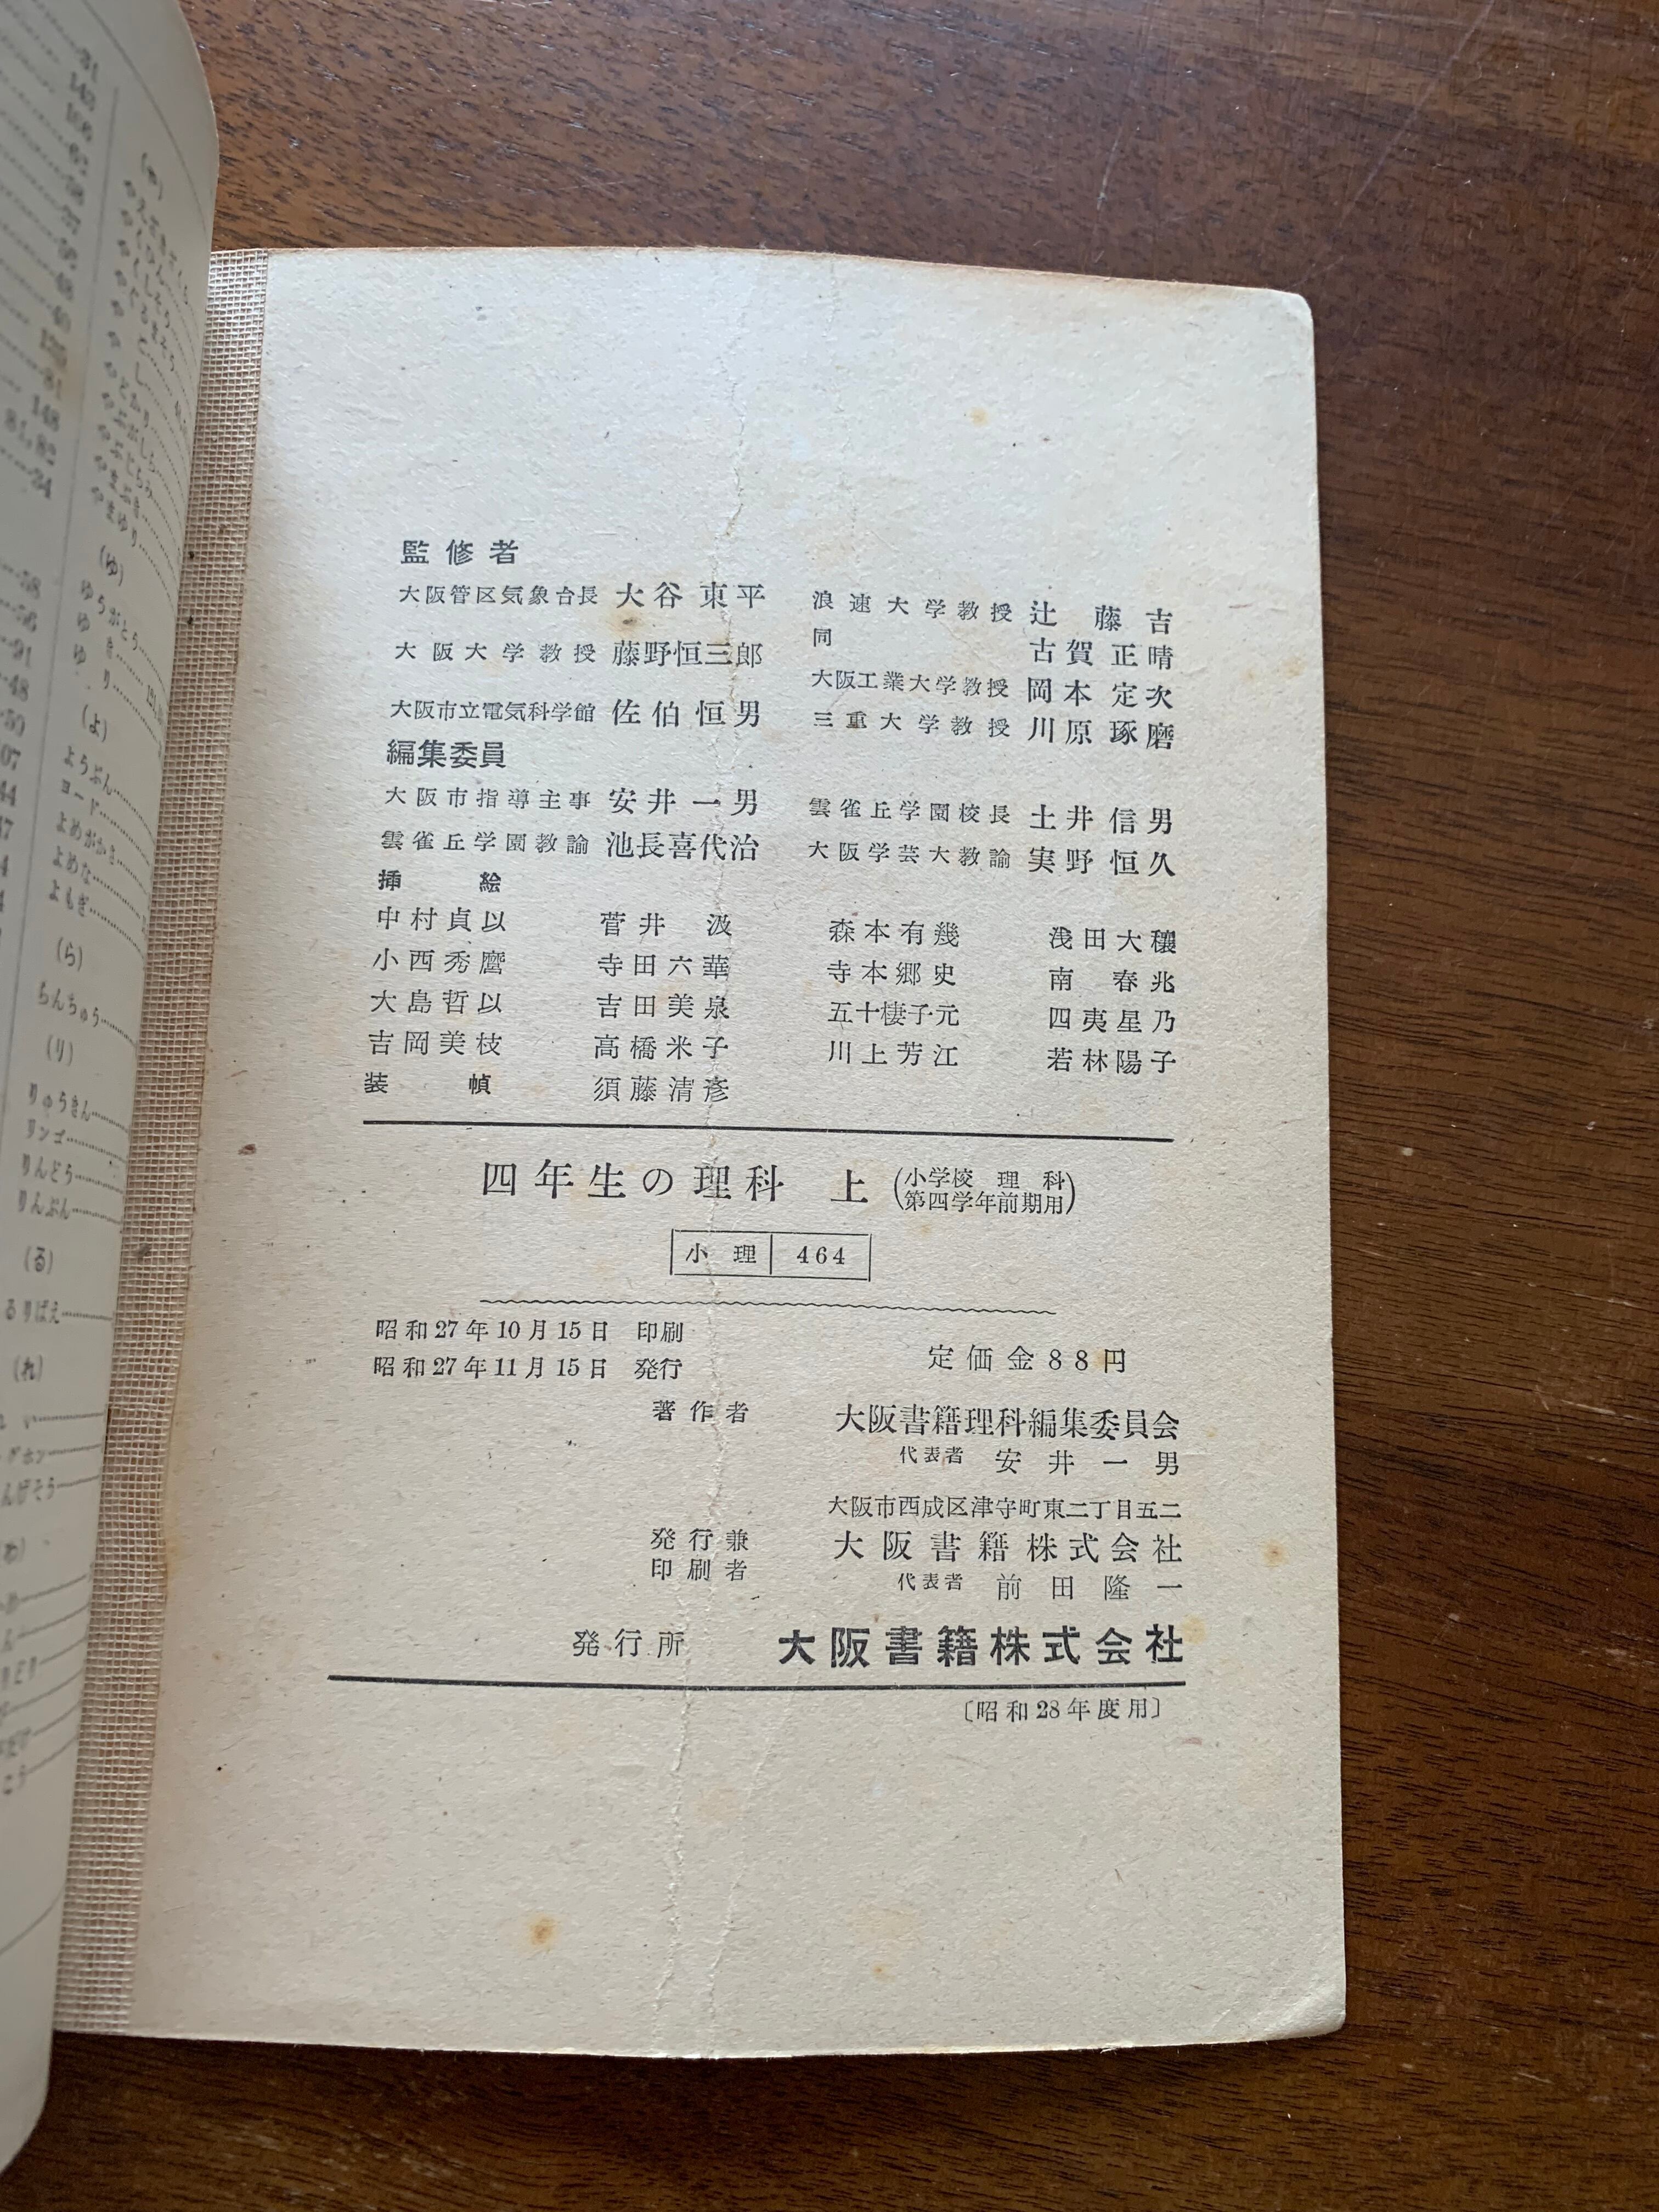 監修者
大阪管区気象台長 大谷東平 浪速大学教授 辻藤吉
同 古賀正晴
大阪大学教授 藤野恒三郎 大阪工業大学教授 岡本定次
大阪市立電気科学館 佐伯恒男 三重大学教授 川原琢磨
編集委員
大阪市指導主事 安井一男 雲雀丘学園校長 土井信男
雲雀丘学園教諭 池長喜代治 大阪学芸大教諭 実野恒久
挿絵
中村貞以 菅井汲 森本有幾 浅田大穰
小西秀麿 寺田六華 寺本郷史 南春兆
大島哲以 吉田美泉 五十棲子元 四夷星乃
吉岡美枝 高橋米子 川上芳江 若林陽子
装幀 須藤清彦
四年生の理科 上 (小学校理科 第四学年前期用)
小理 464
昭和27年10月15日 印刷
昭和27年11月15日 発行
定価金88円
著作者 大阪書籍理科編集委員会
代表者 安井一男
大阪市西成区津守町東二丁目五二
発行兼印刷者 大阪書籍株式会社
代表者 前田隆一
発行所 大阪書籍株式会社
〔昭和28年度用〕
(ゆ)
ゆうがとう
ゆき
ゆり
(よ)
ようぶん
ヨード
よめがかさ
よめな
よもぎ
(ら)
らんちゅう
(り)
りゅうきん
リンゴ
りんどう
りんぷん
(る)
るりばえ
(れ)